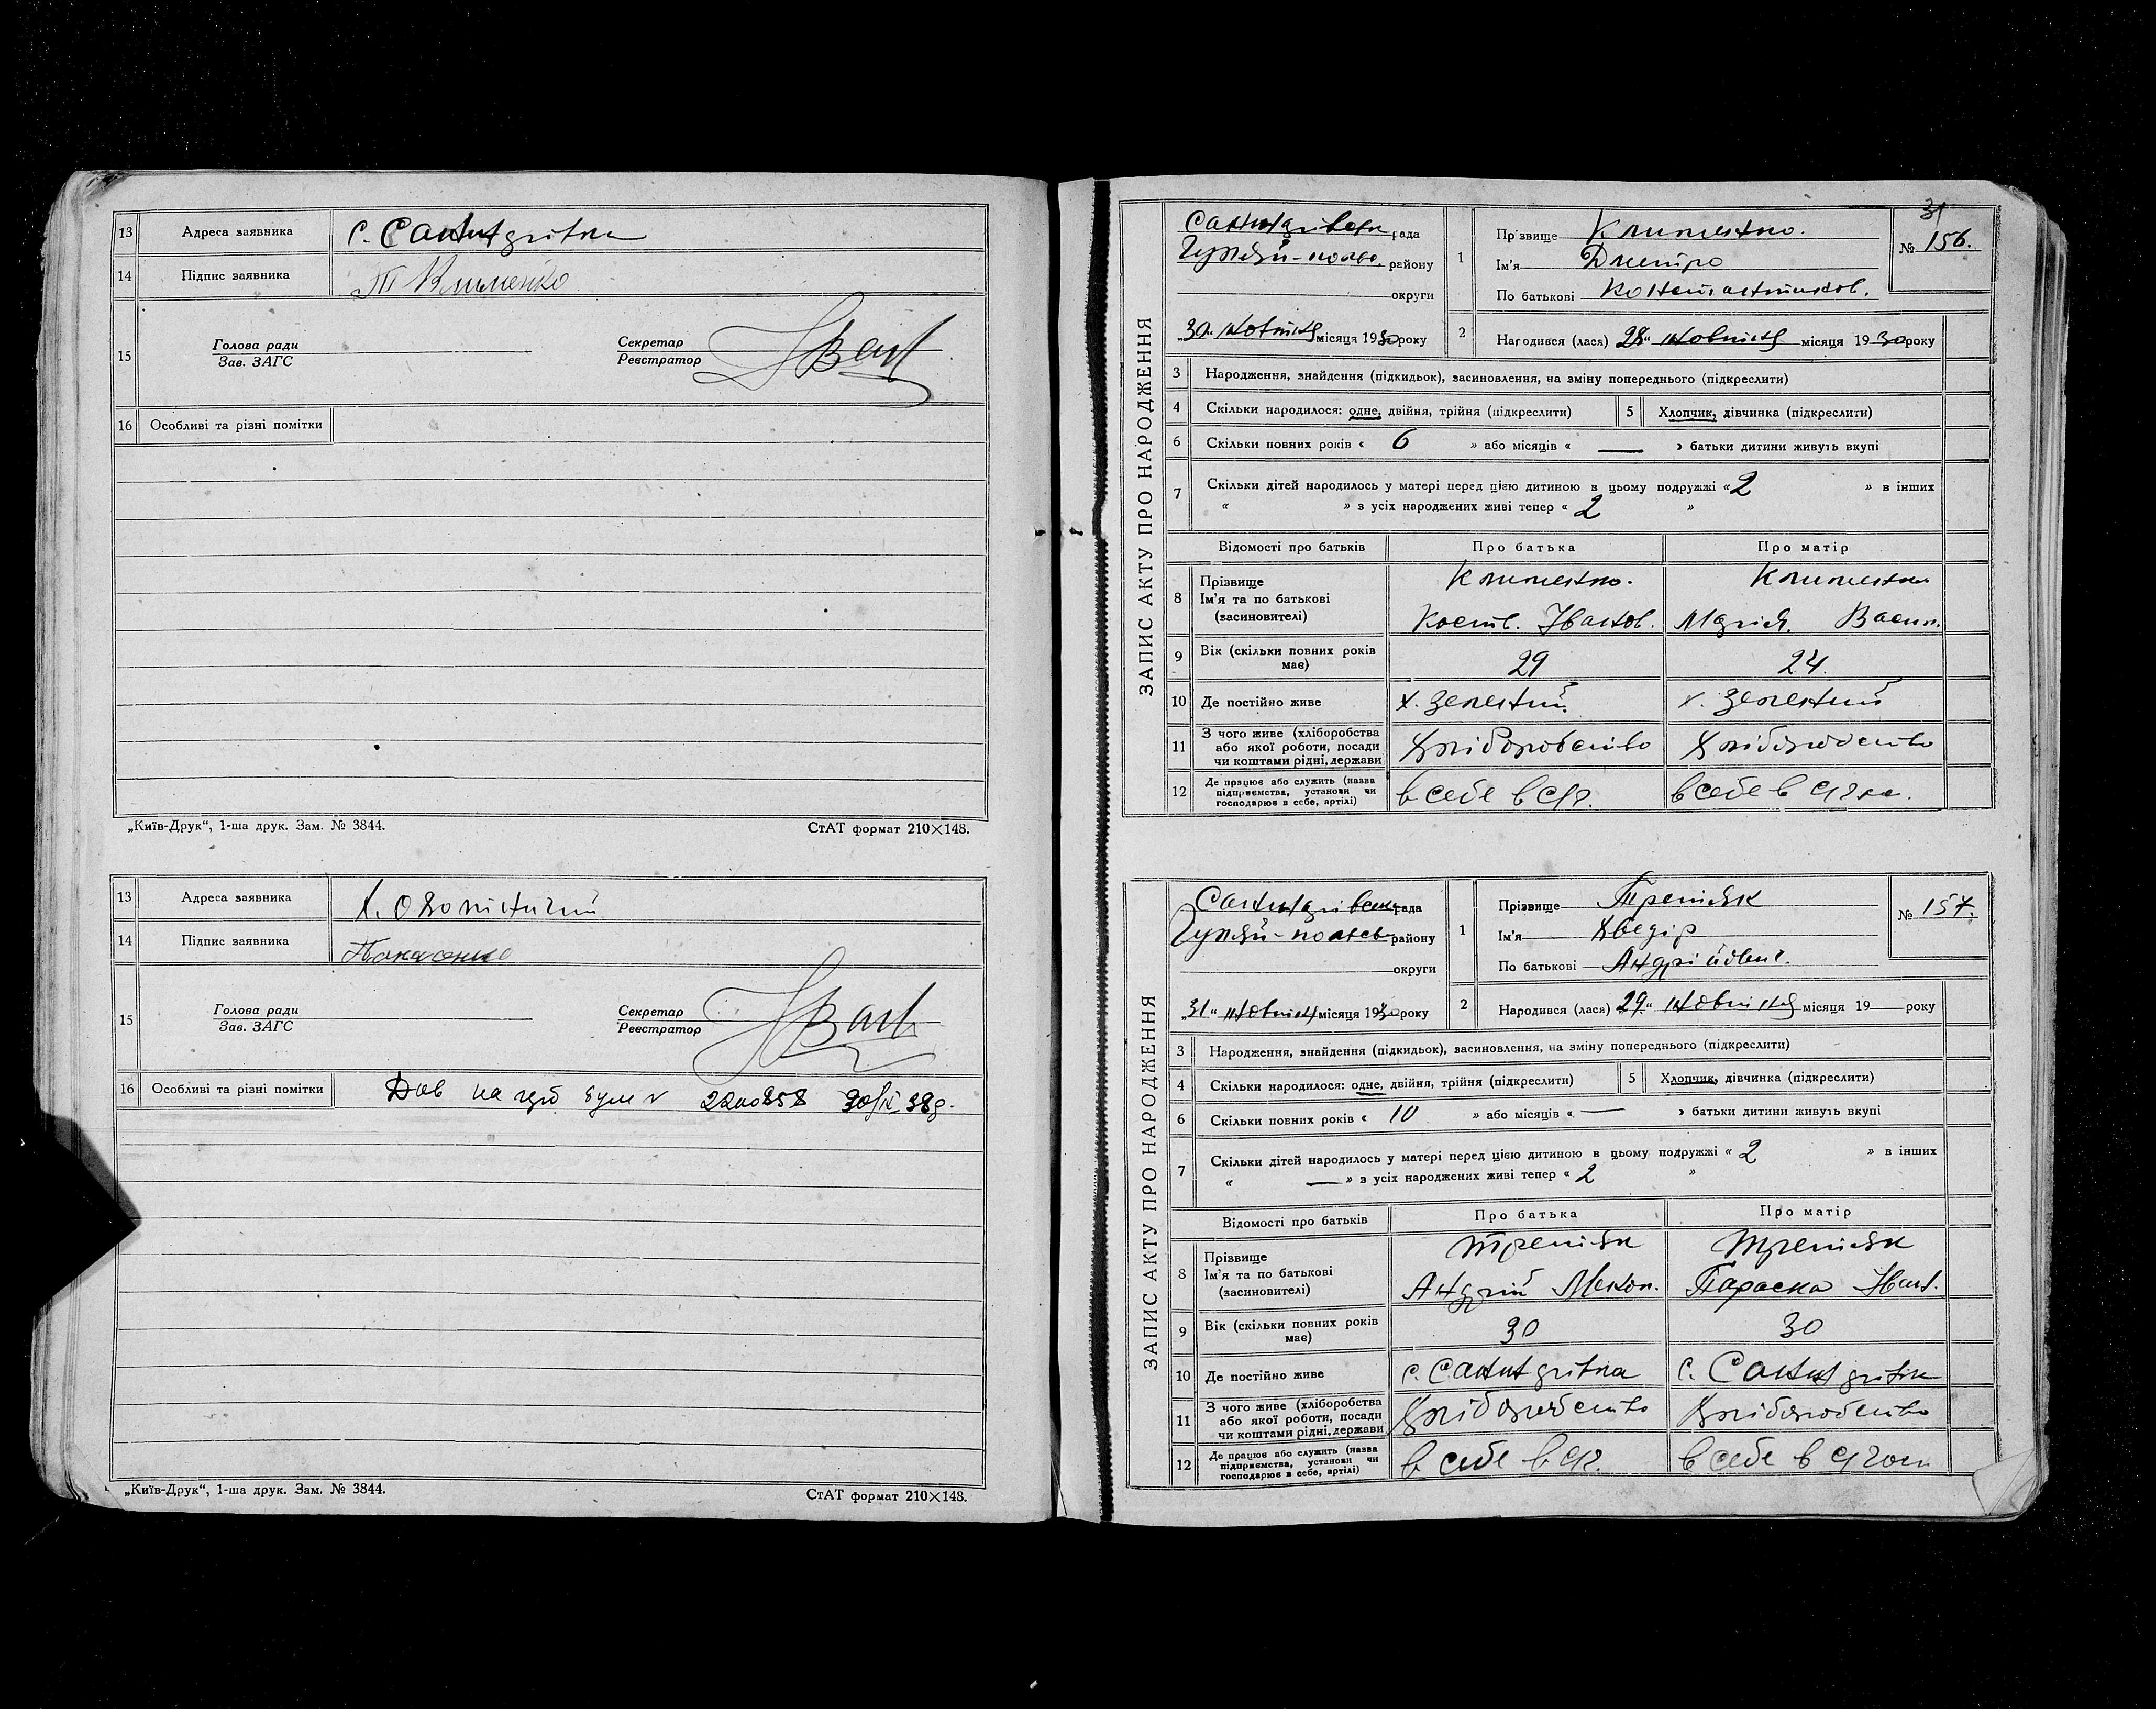 13 Адреса заявника с. Санжарівка
14 Підпис заявника Т Клименко
15 Голова ради
Зав. ЗАГС
Секретар
Реєстратор
16 Особливі та різні помітки
„Київ-Друк“, 1-ша друк. Зам. № 3844. СтАТ формат 210×148.
13 Адреса заявника х.
14 Підпис заявника Панасенко
15 Голова ради
Зав. ЗАГС
Секретар
Реєстратор
16 Особливі та різні помітки
„Київ-Друк“, 1-ша друк. Зам. № 3844. СтАТ формат 210×148.
31
ЗАПИС АКТУ ПРО НАРОДЖЕННЯ
рада
Гуляй-польс. району
округи
„30“ жовтня місяця 1930 року
1 Прізвище Клименко.
Ім'я Дмитро
По батькові Константинов.
№ 156.
2 Народився (лася) 28“ жовтня місяця 1930 року
3 Народження, знайдення (підкидьок), засиновлення, на зміну попереднього (підкреслити)
4 Скільки народилося: одне, двійня, трійня (підкреслити) 5 Хлопчик, дівчинка (підкреслити)
6 Скільки повних років « 6 » або місяців « — » батьки дитини живуть вкупі
7 Скільки дітей народилось у матері перед цією дитиною в цьому подружжі « 2 » в інших
« » з усіх народжених живі тепер « 2 »
Відомості про батьків Про батька Про матір
8 Прізвище Клименко. Клименко
Ім'я та по батькові
(засиновителі) Кост. Іванов. Марія. Васил.
9 Вік (скільки повних років має) 29 24.
10 Де постійно живе х. Зелений х. Зелений
11 З чого живе (хліборобства
або якої роботи, посади
чи коштами рідні, держави Хліборобство Хліборобство
12 Де працює або служить (назва
підприємства, установи чи
господарює в себе, артілі) в себе в в себе в
ЗАПИС АКТУ ПРО НАРОДЖЕННЯ
рада
Гуляй-польсь району
округи
„31“ жовтня місяця 1930 року
1 Прізвище Третяк
Ім'я Хведір
По батькові Андрійович.
№ 157.
2 Народився (лася) 29“ жовтня місяця 19 — року
3 Народження, знайдення (підкидьок), засиновлення, на зміну попереднього (підкреслити)
4 Скільки народилося: одне, двійня, трійня (підкреслити) 5 Хлопчик, дівчинка (підкреслити)
6 Скільки повних років « 10 » або місяців « — » батьки дитини живуть вкупі
7 Скільки дітей народилось у матері перед цією дитиною в цьому подружжі « 2 » в інших
« — » з усіх народжених живі тепер « 2 »
Відомості про батьків Про батька Про матір
8 Прізвище Третяк Третяк
Ім'я та по батькові
(засиновителі) Андрій Параска Іван.
9 Вік (скільки повних років має) 30 30
10 Де постійно живе с. Санжарівка с. Санжарівка
11 З чого живе (хліборобства
або якої роботи, посади
чи коштами рідні, держави Хліборобство Хліборобство
12 Де працює або служить (назва
підприємства, установи чи
господарює в себе, артілі) в себе в в себе в